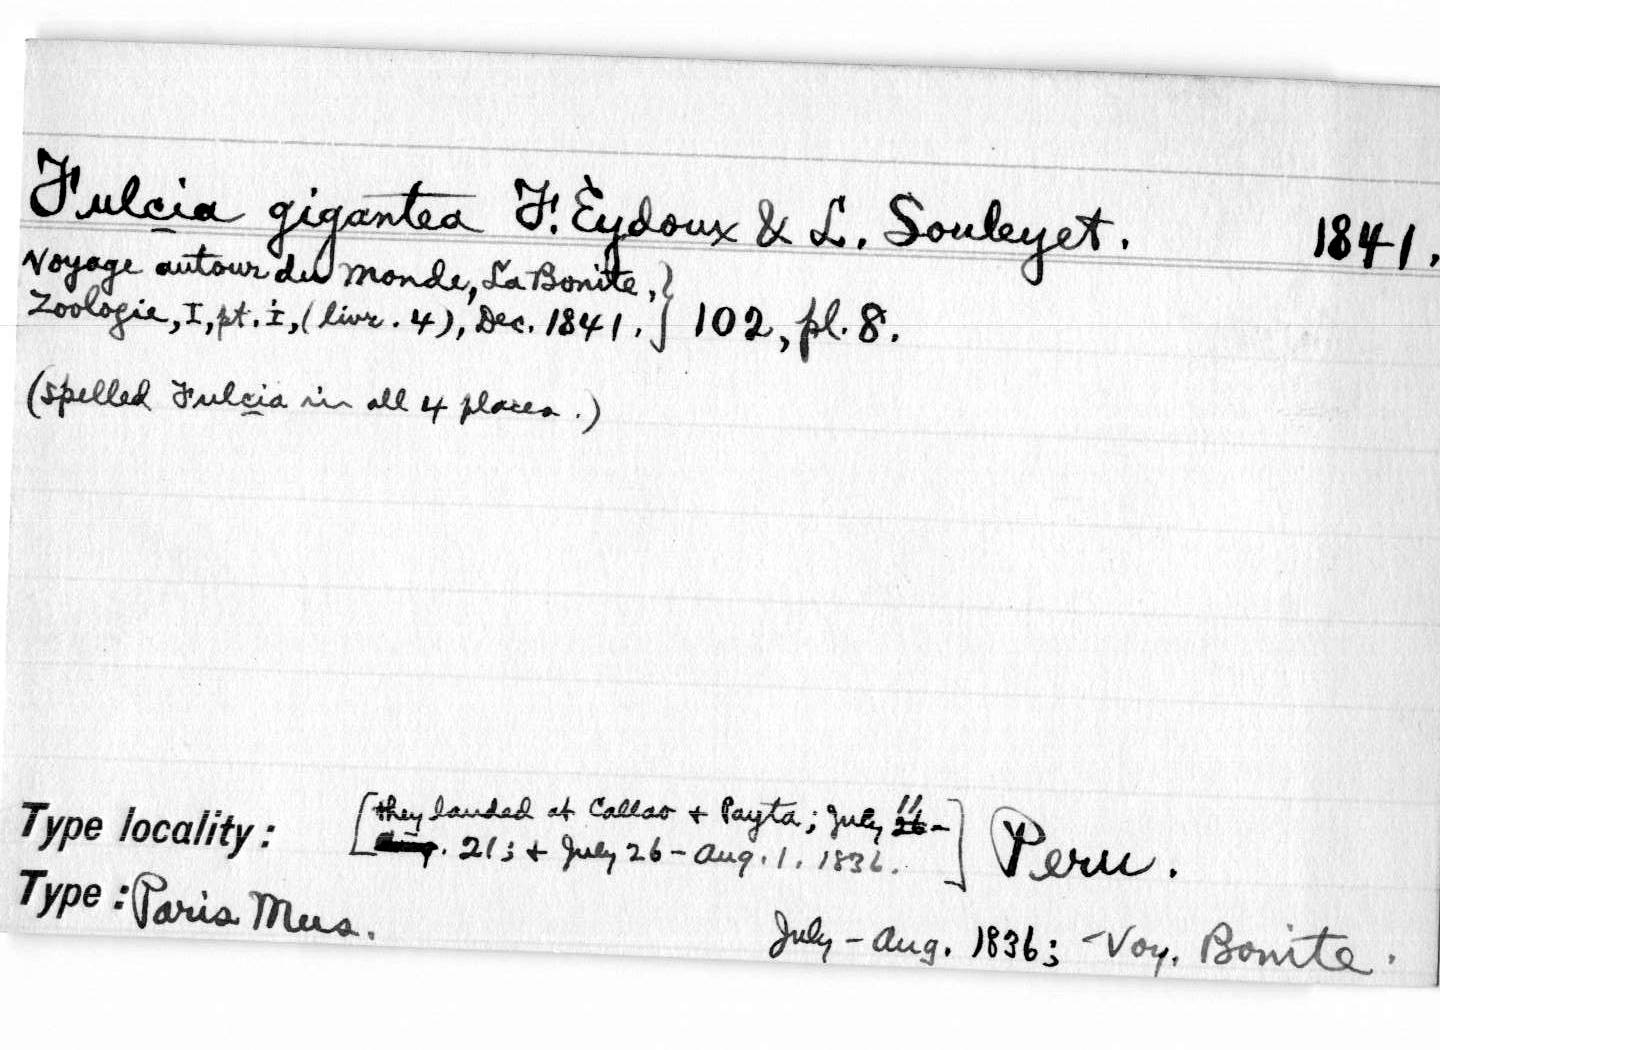 Fulcia gigantea F. Eydoux & L. Souleyet. 1841.
Voyage autour du Monde, La Bonite,
Zoologie, I, pt. i, (livr. 4), Dec. 1841. } 102, pl. 8.
(spelled Fulcia in all 4 places.)
Type locality: [they landed at Callao + Payta; July 11-
21; + July 26 - Aug. 1. 1836.] Peru.
Type: Paris Mus.
July - Aug. 1836; Voy. Bonite.